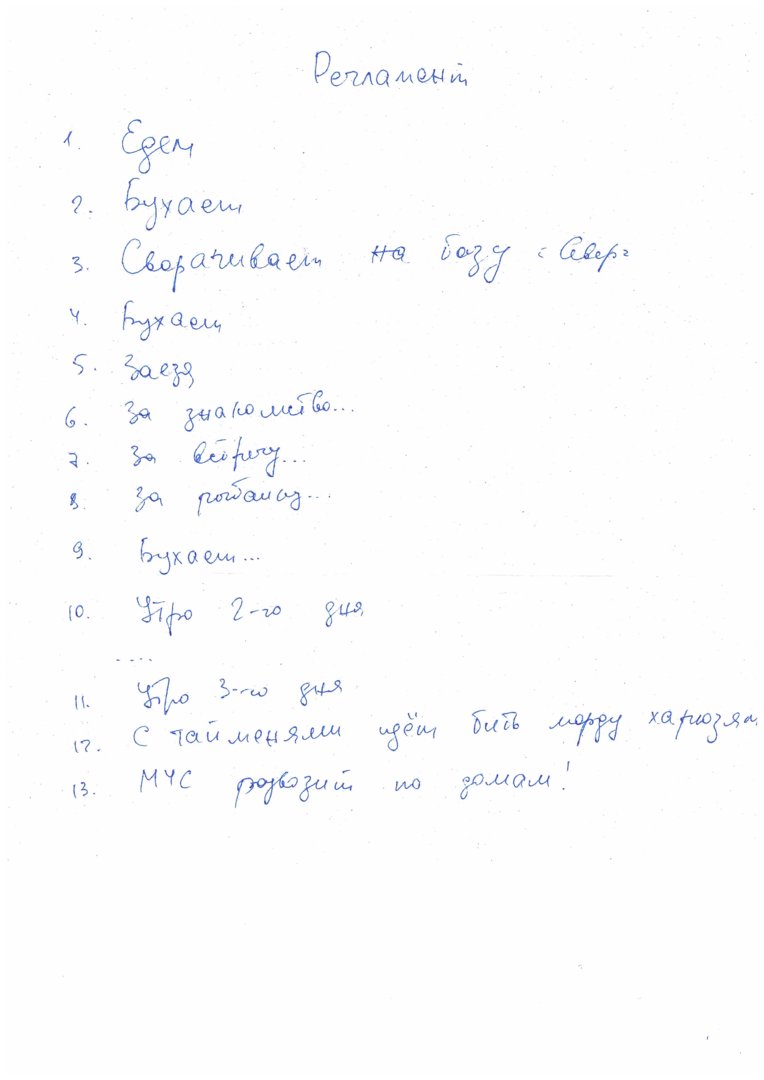 Регламент
1. Едем
2. Бухаем
3. Сворачиваем на базу "Север"
4. Бухаем
5. Заезд
6. За знакомство...
7. За встречу...
8. За рыбалку...
9. Бухаем...
10. Утро 2-го дня
....
11. Утро 3-го дня
12. С тайменями идём бить морду хариузям
13. МЧС развозит по домам!